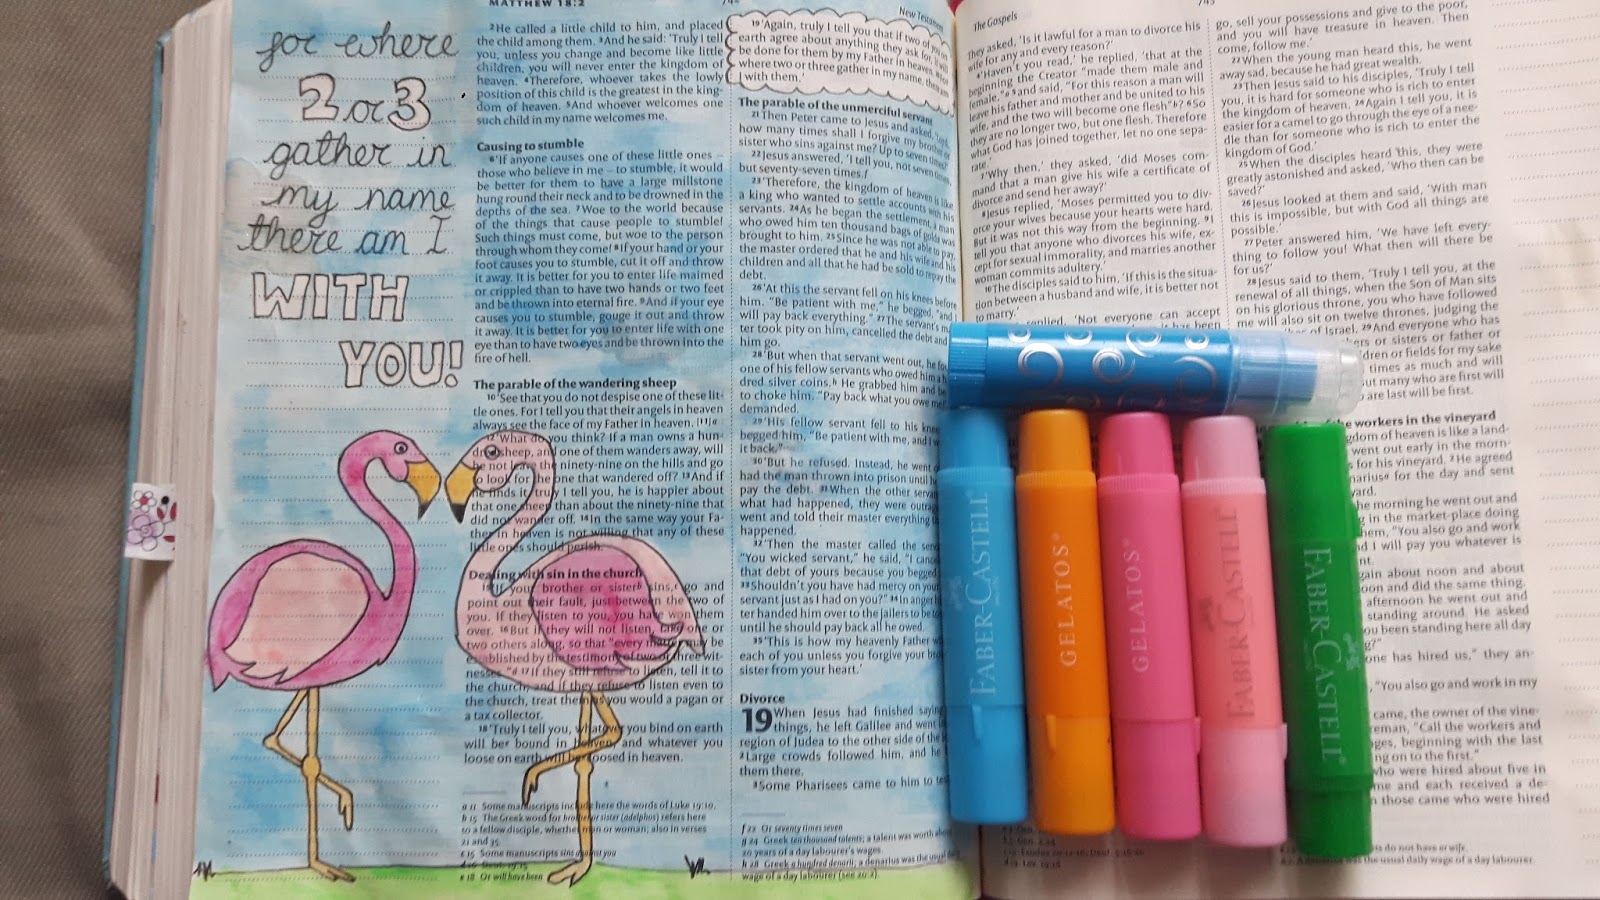 for where
2 or 3
gather in
my name
there am I
WITH
YOU!
MATTHEW 18:2
²He called a little child to him, and placed
the child among them. ³And he said: 'Truly I tell
you, unless you change and become like little
children, you will never enter the kingdom of
heaven. ⁴Therefore, whoever takes the lowly
position of this child is the greatest in the king-
dom of heaven. ⁵And whoever welcomes one
such child in my name welcomes me.
Causing to stumble
⁶'If anyone causes one of these little ones –
those who believe in me – to stumble, it would
be better for them to have a large millstone
hung round their neck and to be drowned in the
depths of the sea. ⁷Woe to the world because
of the things that cause people to stumble!
Such things must come, but woe to the person
through whom they come! ⁸If your hand or your
foot causes you to stumble, cut it off and throw
it away. It is better for you to enter life maimed
or crippled than to have two hands or two feet
and be thrown into eternal fire. ⁹And if your eye
causes you to stumble, gouge it out and throw
it away. It is better for you to enter life with one
eye than to have two eyes and be thrown into the
fire of hell.
The parable of the wandering sheep
¹⁰'See that you do not despise one of these lit-
tle ones. For I tell you that their angels in heaven
always see the face of my Father in heaven. [11] a
¹²'What do you think? If a man owns a hun-
dred sheep, and one of them wanders away, will
he not leave the ninety-nine on the hills and go
to look for the one that wandered off? ¹³And if
he finds it, truly I tell you, he is happier about
that one sheep than about the ninety-nine that
did not wander off. ¹⁴In the same way your Fa-
ther in heaven is not willing that any of these
little ones should perish.
Dealing with sin in the church
¹⁵'If your brother or sister b sins, go and
point out their fault, just between the two of
you. If they listen to you, you have won them
over. ¹⁶But if they will not listen, take one or
two others along, so that "every matter may be
established by the testimony of two or three wit-
nesses". d ¹⁷If they still refuse to listen, tell it to
the church; and if they refuse to listen even to
the church, treat them as you would a pagan or
a tax collector.
¹⁸'Truly I tell you, whatever you bind on earth
will be e bound in heaven, and whatever you
loose on earth will be loosed in heaven.
a 11 Some manuscripts include here the words of Luke 19:10.
b 15 The Greek word for brother or sister (adelphos) refers here
to a fellow disciple, whether man or woman; also in verses
21 and 35.
c 15 Some manuscripts sins against you
d 16 Deut. 19:15
e 18 Or will have been
New Testament
¹⁹'Again, truly I tell you that if two of you on
earth agree about anything they ask for, it will
be done for them by my Father in heaven.
where two or three gather in my name, there am
I with them.'
The parable of the unmerciful servant
²¹Then Peter came to Jesus and asked, 'Lord,
how many times shall I forgive my brother or
sister who sins against me? Up to seven times?'
²²Jesus answered, 'I tell you, not seven times,
but seventy-seven times. f
²³'Therefore, the kingdom of heaven is like
a king who wanted to settle accounts with his
servants. ²⁴As he began the settlement, a man
who owed him ten thousand bags of gold g was
brought to him. ²⁵Since he was not able to pay,
the master ordered that he and his wife and his
children and all that he had be sold to repay the
debt.
²⁶'At this the servant fell on his knees before
him. "Be patient with me," he begged, "and I
will pay back everything." ²⁷The servant's
took pity on him, cancelled the debt and
him go.
²⁸'But when that servant went out, he
one of his fellow servants who owed him a
dred silver coins. h He grabbed him and
to choke him. "Pay back what you owe me!"
demanded.
²⁹'His fellow servant fell to his knees
begged him, "Be patient with me, and I
it back."
³⁰'But he refused. Instead, he went
had the man thrown into prison until he
pay the debt. ³¹When the other
what had happened, they were
went and told their master everything
happened.
³²'Then the master called the
"You wicked servant," he said, "I
that debt of yours because you begged
³³Shouldn't you have had mercy on your
servant just as I had on you?" ³⁴In anger
ter handed him over to the jailers to be
until he should pay back all he owed.
³⁵'This is how my heavenly Father
each of you unless you forgive your
sister from your heart.'
Divorce
19 When Jesus had finished saying
things, he left Galilee and went
region of Judea to the other side of the
²Large crowds followed him, and he
them there.
³Some Pharisees came to him to
f 22 Or seventy times seven
g 24 Greek ten thousand talents; a talent was worth about
20 years of a day labourer's wages.
h 28 Greek a hundred denarii; a denarius was the usual daily
wage of a day labourer (see 20:2).
The Gospels
743
they asked, 'Is it lawful for a man to divorce his
wife for any and every reason?'
⁴'Haven't you read,' he replied, 'that at the
beginning the Creator "made them male and
female," a ⁵and said, "For this reason a man will
leave his father and mother and be united to his
wife, and the two will become one flesh" b? ⁶So
they are no longer two, but one flesh. Therefore
what God has joined together, let no one sepa-
rate.'
⁷'Why then,' they asked, 'did Moses com-
mand that a man give his wife a certificate of
divorce and send her away?'
⁸Jesus replied, 'Moses permitted you to div-
orce your wives because your hearts were hard.
But it was not this way from the beginning. ⁹I
tell you that anyone who divorces his wife, ex-
cept for sexual immorality, and marries another
woman commits adultery.'
¹⁰The disciples said to him, 'If this is the situa-
tion between a husband and wife, it is better not
to marry.'
replied, 'Not everyone can accept
been
go, sell your possessions and give to the poor,
and you will have treasure in heaven. Then
come, follow me.'
²²When the young man heard this, he went
away sad, because he had great wealth.
²³Then Jesus said to his disciples, 'Truly I tell
you, it is hard for someone who is rich to enter
the kingdom of heaven. ²⁴Again I tell you, it is
easier for a camel to go through the eye of a nee-
dle than for someone who is rich to enter the
kingdom of God.'
²⁵When the disciples heard this, they were
greatly astonished and asked, 'Who then can be
saved?'
²⁶Jesus looked at them and said, 'With man
this is impossible, but with God all things are
possible.'
²⁷Peter answered him, 'We have left every-
thing to follow you! What then will there be
for us?'
²⁸Jesus said to them, 'Truly I tell you, at the
renewal of all things, when the Son of Man sits
on his glorious throne, you who have followed
me will also sit on twelve thrones, judging the
of Israel. ²⁹And everyone who has
or sisters or father or
or fields for my sake
times as much and will
But many who are first will
are last will be first.
workers in the vineyard
of heaven is like a land-
went out early in the morn-
for his vineyard. ²He agreed
for the day and sent
morning he went out and
in the market-place doing
"You also go and work
I will pay you whatever is
about noon and about
and did the same thing.
afternoon he went out and
standing around. He asked
been standing here all day
has hired us," they an-
"You also go and work in my
came, the owner of the vine-
"Call the workers and
beginning with the last
on to the first."
who were hired about five in
came and each received a de-
those came who were hired
do not have or wife.
was the usual daily wage of a day labourer.
FABER-CASTELL
GELATOS®
GELATOS®
FABER-CASTELL
FABER-CASTELL